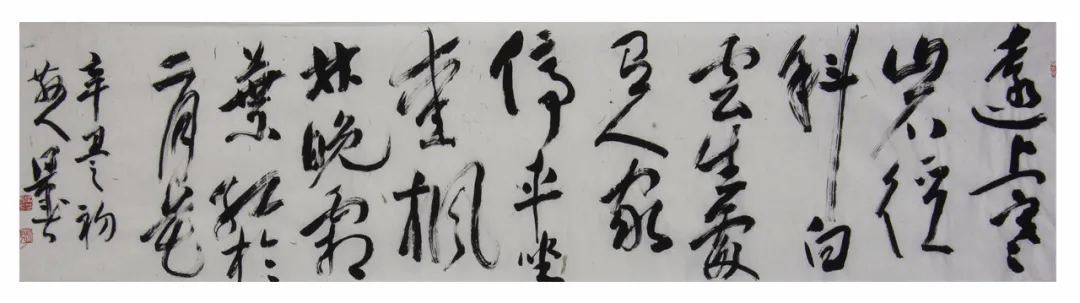 遠上寒
山石徑
斜白
雲生處
有人家
停車坐
愛楓
林晚霜
葉紅於
二月花
辛丑之初
人墨书